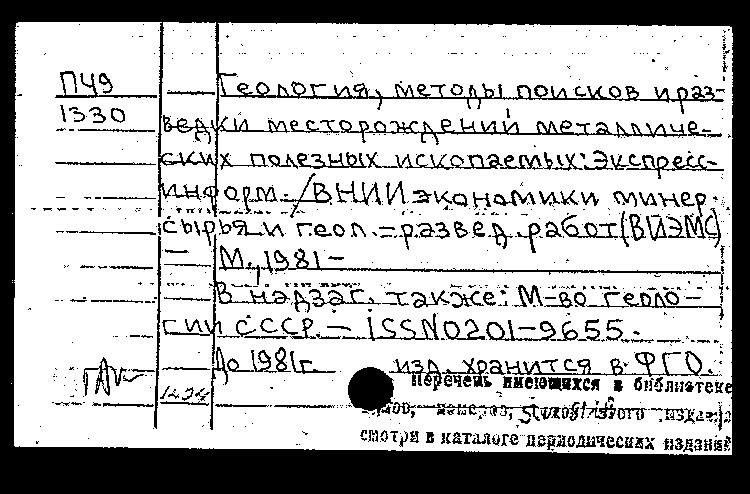 П49
1330
Геология, методы поисков и раз-
ведки месторождений металличе-
ских полезных ископаемых: Экспресс-
информ. / ВНИИ экономики минер.
сырья и геол. - развед. работ (ВИЭМС)
— М., 1981 —
В надзаг. также: М-во геоло-
гии СССР. — ISSN 0201-9655.
До 1981г. изд. хранится в ФГО.
Перечень имеющихся в библиотеке
номеров, этого издания
смотри в каталоге периодических изданий